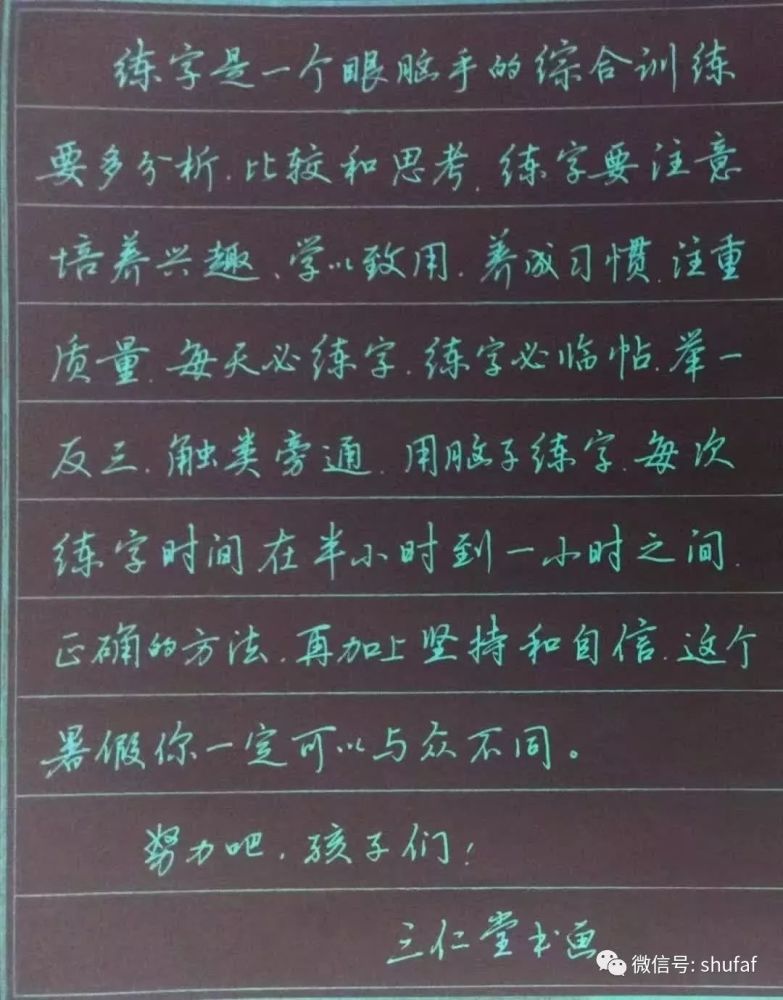 练字是一个眼脑手的综合训练
要多分析.比较和思考.练字要注意
培养兴趣、学以致用.养成习惯.注重
质量.每天必练字.练字必临帖.举一
反三.触类旁通.用脑子练字.每次
练字时间在半小时到一小时之间.
正确的方法.再加上坚持和自信.这个
暑假你一定可以与众不同。
努力吧.孩子们!
三仁堂书画
微信号: shufaf